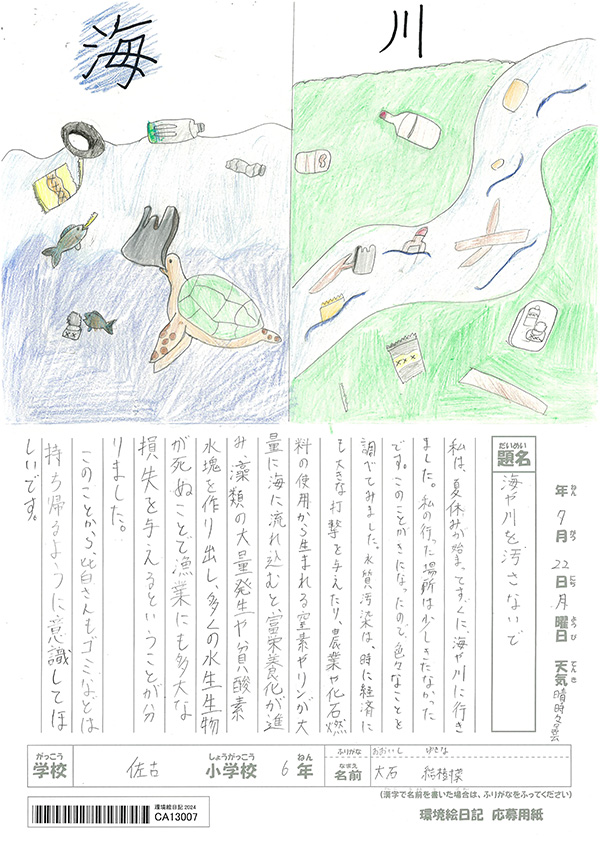 海
川
だいめい
題名
海や川を汚さないで
年 7月 22日 月曜日 天気 晴時々曇
ねん がつ にち ようび てんき
私は、夏休みが始まってすぐに、海や川に行き
ました。私の行った場所は少しきたなかった
です。このことがきになったので、色々なことを
調べてみました。水質汚染は、時に経済に
も大きな打撃を与えたり、農業や化石燃
料の使用から生まれる窒素やリンが大
量に海に流れ込むと、富栄養化が進
み、藻類の大量発生や貧酸素
水塊を作り出し、多くの水生生物
が死ぬことで漁業にも多大な
損失を与えるということが分
りました。
このことから、皆さんもゴミなどは
持ち帰るように意識してほ
しいです。
がっこう しょうがっこう ねん ふりがな おおいし
学校 佐古 小学校 6年 なまえ 名前 大石
(漢字で名前を書いた場合は、ふりがなをふってください)
環境絵日記2024
CA13007
環境絵日記 応募用紙